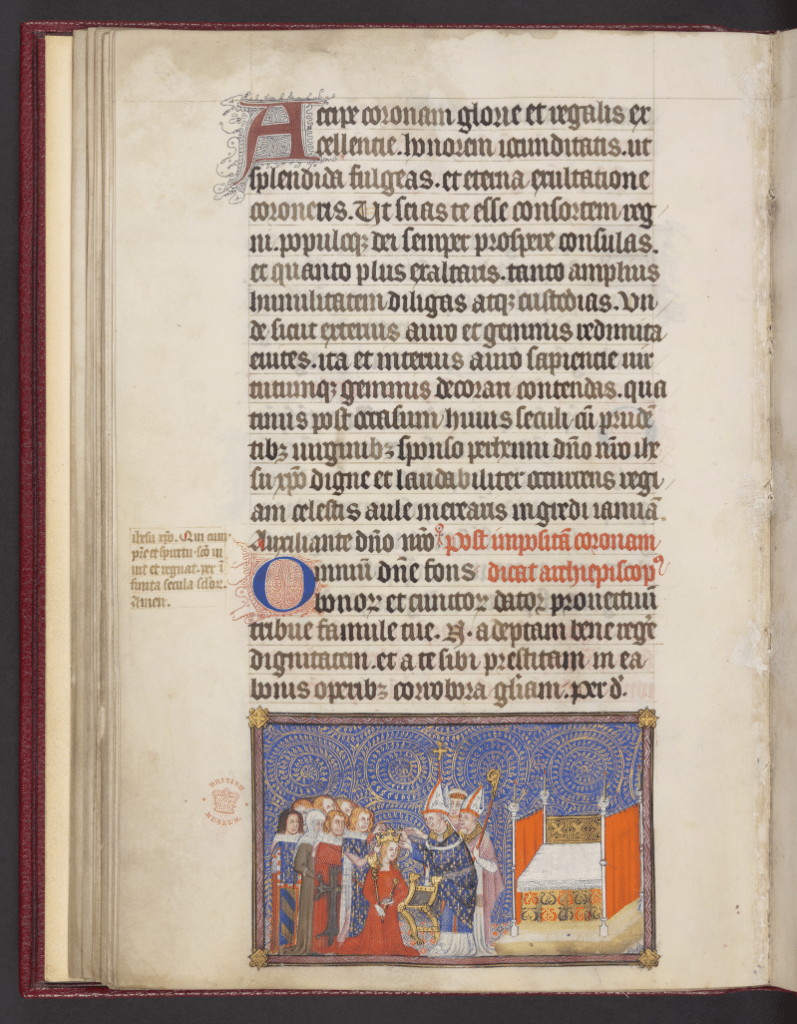 Accipe coronam glorie et regalis ex
cellentie. honorem iocunditatis. ut
splendida fulgeas. et eterna exultatione
coroneris. Ut scias te esse consortem reg
ni. populoqȝ dei semper prospere consulas.
et quanto plus exaltaris. tanto amplius
humilitatem diligas atqȝ custodias. Vn
de sicut exterius auro et gemmis redimita
enites. ita et interius auro sapientie uir
tutumqȝ gemmis decorari contendas. qua
tinus post occasum huius seculi cū prudē
tibȝ uirginibȝ sponso perhenni dño nr̄o ihe
su xp̄o digne et laudabiliter occurrens regi
am celestis aule merearis ingredi ianuā.
Auxiliante dño nr̄o post impositā coronam
Omniū dn̄e fons dicat archiepiscopꝰ
bonoꝝ et cunctoꝝ datoꝝ prouectuū
tribue famule tue. N. adeptam bene regēe
dignitatem. et a te sibi prestitam in ea
bonis operibȝ corrobora gl̄iam. per d̄.
ihesu xp̄o. Qui cum
pr̄e et spiritu sc̄o ui
uit et regnat. per ī
finita secula sclōꝝ.
Amen.
BRITISH
MUSEUM